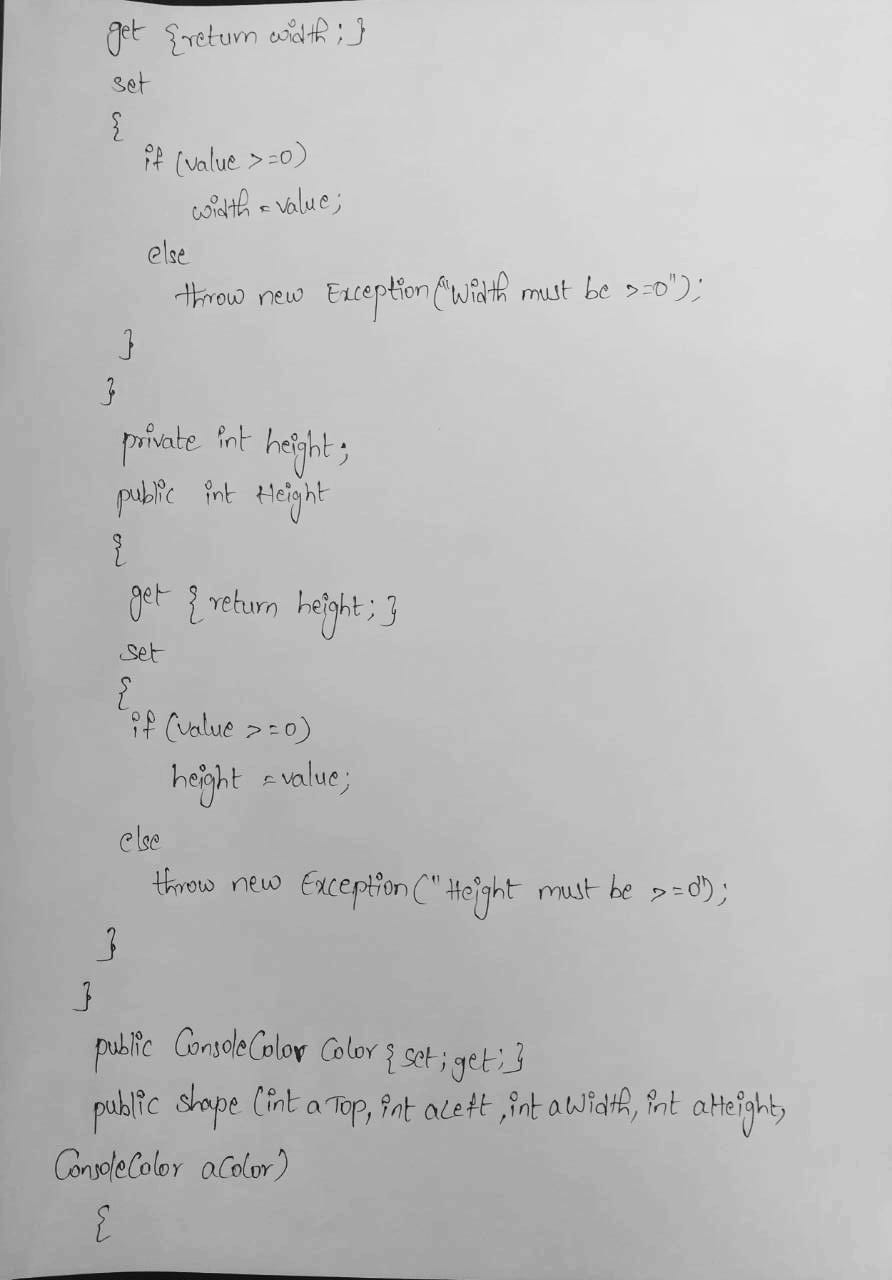 get {return width;}
set
{
if (value >=0)
width = value;
else
throw new Exception("Width must be >=0");
}
}
private int height;
public int Height
{
get { return height; }
set
{
if (value >=0)
height = value;
else
throw new Exception("Height must be >=0");
}
}
public ConsoleColor Color { set; get; }
public shape (int aTop, int aLeft, int aWidth, int aHeight,
ConsoleColor aColor)
{